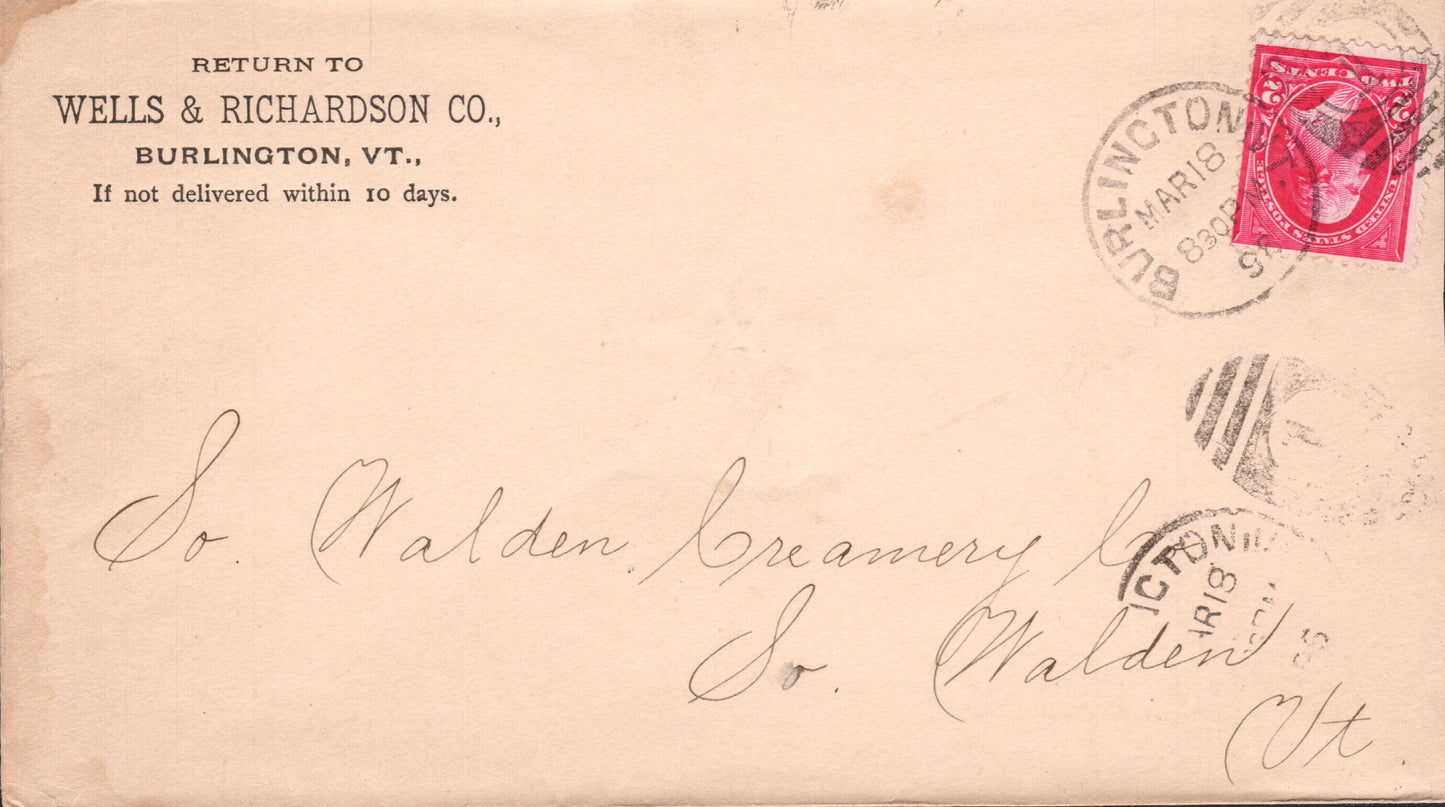 RETURN TO
WELLS & RICHARDSON CO.,
BURLINGTON, VT.,
If not delivered within 10 days.
TWO CENTS
2 2
UNITED STATES POSTAGE
BURLINGTON VT.
MAR 18
830PM
96
So. Walden Creamery Co
So. Walden
Vt
CTON
AR 18
96